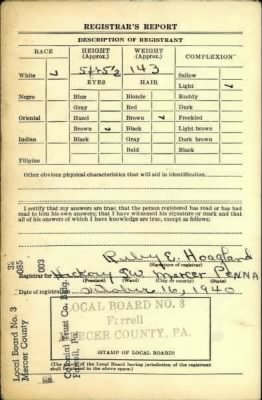 REGISTRAR'S REPORT
DESCRIPTION OF REGISTRANT
RACE
HEIGHT
(Approx.)
WEIGHT
(Approx.)
COMPLEXION
White ✓
5 ft 5½
143
Sallow
EYES
HAIR
Light ✓
Negro
Blue
Blonde
Ruddy
Gray
Red
Dark
Oriental
Hazel
Brown ✓
Freckled
Brown ✓
Black
Light brown
Indian
Black
Gray
Dark brown
Bald
Black
Filipino
Other obvious physical characteristics that will aid in identification
I certify that my answers are true; that the person registered has read or has
had read to him his own answers; that I have witnessed his signature or mark and that
all of his answers of which I have knowledge are true, except as follows:
Ruby E. Hoagland
(Signature of registrar)
Registrar for Hickory SW Mercer PENNA
(Ward) (City or county) (State)
Date of registration October 16, 1940
LOCAL BOARD NO. 3
Farrell
MERCER COUNTY, PA.
STAMP OF LOCAL BOARD
(The stamp of the Local Board having jurisdiction of the registrant
shall be placed in the above space.)
Local Board No. 3
Mercer County
085
003
Colonial Trust Co. Bldg.
Farrell, Pa.